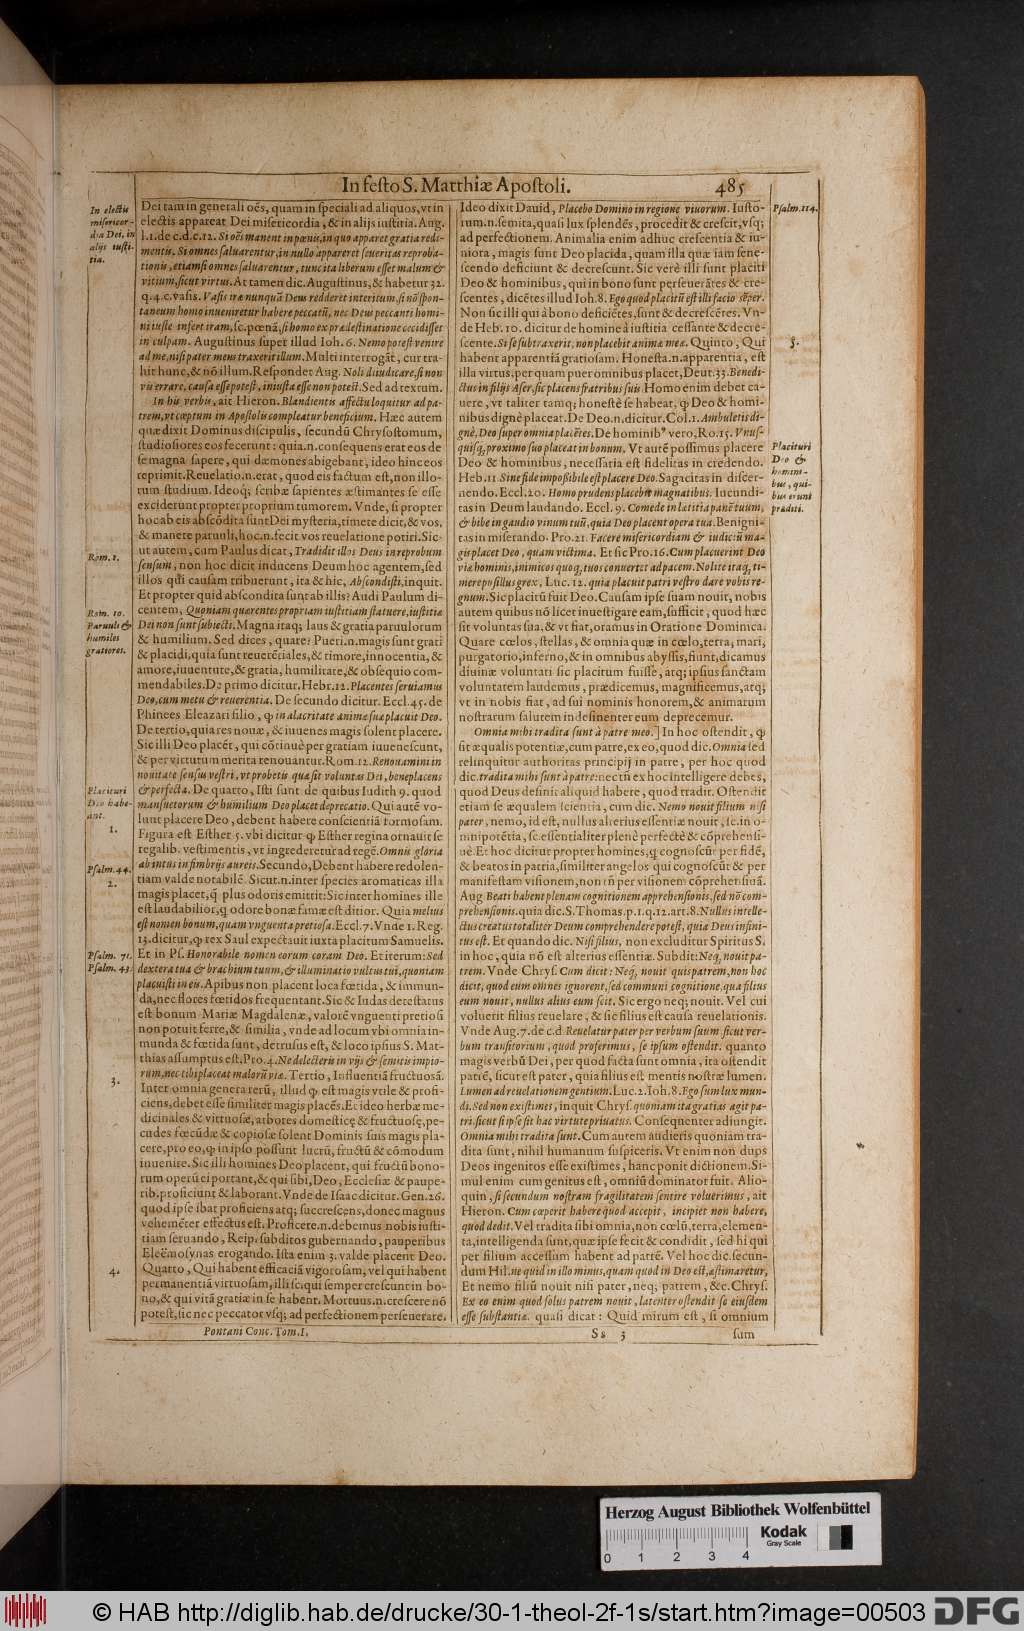 In festo S. Matthiæ Apostoli. 485
In electis
misericor-
dia Dei, in
alijs iusti-
tia.
Dei tam in generali oẽs, quam in speciali ad aliquos, vt in
electis appareat Dei misericordia, & in alijs iustitia. Aug.
l.1. de c.d.c.12. Si oẽs manent in pœnis, in quo apparet gratia redi-
mentis. Si omnes saluarentur, in nullo appareret seueritas reproba-
tionis, etiamsi omnes saluarentur, tunc ita liberum esset malum &
vitium, sicut virtus. At tamen dic. Augustinus, & habetur 32.
q.4.c. vasis. Vasis iræ nunquã Deus redderet interitum, si nõ spon-
taneum homo inueniretur habere peccatũ, nec Deus peccanti homi-
ni iuste infert iram, sc. pœnã, si homo ex prædestinatione cecidisset
in culpam. Augustinus super illud Ioh. 6. Nemo potest venire
ad me, nisi pater meus traxerit illum. Multi interrogãt, cur tra-
hit hunc, & nõ illum. Respondet Aug. Noli diiudicare, si non
vis errare, causa esse potest, iniusta esse non potest. Sed ad textum.
In his verbis, ait Hieron. Blandientis affectu loquitur ad pa-
trem, vt cœptum in Apostolis compleatur beneficium. Hæc autem
quæ dixit Dominus discipulis, secundũ Chrysostomum,
studiosiores eos fecerunt: quia. n. consequens erat eos de
se magna sapere, qui dæmones abigebant, ideo hinc eos
reprimit. Reuelatio. n. erat, quod eis factum est, non illo-
rum studium. Ideoq; scribæ sapientes æstimantes se esse
exciderunt propter proprium tumorem. Vnde, si propter
hoc ab eis abscõdita sunt Dei mysteria, timete dicit, & vos,
& manete paruuli, hoc. n. fecit vos reuelatione potiri. Sic-
Rom. 1.
ut autem, cum Paulus dicat, Tradidit illos Deus in reprobum
sensum, non hoc dicit inducens Deum hoc agentem, sed
illos qui causam tribuerunt, ita & hic, Abscondisti, inquit.
Et propter quid abscondita sunt ab illis? Audi Paulum di-
Rom. 10.
Paruuli &
humiles
gratiores.
centem, Quoniam quærentes propriam iustitiam statuere, iustitiæ
Dei non sunt subiecti. Magna itaq; laus & gratia paruulorum
& humilium. Sed dices, quare? Pueri. n. magis sunt grati
& placidi, quia sunt reuerẽtiales, & timore, innocentia, &
amore, iuuentute, & gratia, humilitate, & obsequio com-
mendabiles. De primo dicitur. Hebr. 12. Placentes seruiamus
Deo, cum metu & reuerentia. De secundo dicitur. Eccl. 45. de
Phinees Eleazari filio, ꝙ in alacritate animæ suæ placuit Deo.
De tertio, quia res nouæ, & iuuenes magis solent placere.
Sic illi Deo placẽt, qui cõtinuè per gratiam iuuenescunt,
& per virtutum merita renouantur. Rom. 12. Renouamini in
nouitate sensus vestri, vt probetis quæ sit voluntas Dei, beneplacens
Placituri
Deo habe-
ant.
& perfecta. De quarto, Isti sunt de quibus Iudith 9. quod
mansuetorum & humilium Deo placet deprecatio. Qui autẽ vo-
lunt placere Deo, debent habere conscientiã formosam.
1.
Figura est Esther 5. vbi dicitur ꝙ Esther regina ornauit se
regalib. vestimentis, vt ingrederetur ad regẽ. Omnis gloria
Psalm. 44.
ab intus in fimbrijs aureis. Secundo, Debent habere redolen-
2.
tiam valde notabilẽ. Sicut. n. inter species aromaticas illa
magis placet, q̃ plus odoris emittit: Sic inter homines ille
est laudabilior, q̃ odore bonæ famæ est ditior. Quia melius
est nomen bonum, quam vnguenta pretiosa. Eccl. 7. Vnde 1. Reg.
13. dicitur, ꝙ rex Saul expectauit iuxta placitum Samuelis.
Psalm. 71.
Psalm. 43.
Et in Ps. Honorabile nomen eorum coram Deo. Et iterum: Sed
dextera tua & brachium tuum, & illuminatio vultus tui, quoniam
placuisti in eis. Apibus non placent loca fœtida, & immun-
da, nec flores fœtidos frequentant. Sic & Iudas detestatus
est bonum Mariæ Magdalenæ, valorẽ vnguenti pretiosi
non potuit ferre, & similia, vnde ad locum vbi omnia in-
munda & fœtida sunt, detrusus est, & loco ipsius S. Mat-
thias assumptus est. Pro. 4. Ne delecteris in vijs & semitis impio-
rum, nec tibi placeat malorũ via. Tertio, Influentiã fructuosã.
3.
Inter omnia genera rerũ, illud ꝙ est magis vtile & profi-
ciens, debet esse similiter magis placẽs. Et ideo herbæ me-
dicinales & virtuosæ, arbores domesticę & fructuosę, pe-
cudes fœcũdæ & copiosæ solent Dominis suis magis pla-
cere, pro eo, ꝙ in ipso possunt lucrũ, fructũ & cõmodum
inuenire. Sic illi homines Deo placent, qui fructũ bono-
rum operũ ei portant, & qui sibi, Deo, Ecclesiæ & paupe-
rib. proficiunt & laborant. Vnde de Isaac dicitur. Gen. 26.
quod ipse ibat proficiens atq; succrescens, donec magnus
vehemẽter effectus est. Proficere. n. debemus nobis iusti-
tiam seruando, Reip. subditos gubernando, pauperibus
Eleëmosynas erogando. Ista enim 3. valde placent Deo.
4.
Quarto, Qui habent efficaciã vigorosam, vel qui habent
permanentiã virtuosam, illi sc: qui semper crescunt in bo-
no, & qui vitã gratiæ in se habent. Mortuus. n. crescere nõ
potest, sic nec peccator vsq; ad perfectionem perseuerare.
Ideo dixit Dauid, Placebo Domino in regione viuorum. Iusto-
Psalm. 114.
rum. n. semita, quasi lux splendẽs, procedit & crescit, vsq;
ad perfectionem. Animalia enim adhuc crescentia & iu-
niora, magis sunt Deo placida, quam illa quæ iam sene-
scendo deficiunt & decrescunt. Sic verè illi sunt placiti
Deo & hominibus, qui in bono sunt perseuerãtes & cre-
scentes, dicẽtes illud Ioh. 8. Ego quod placitũ est illi facio sẽper.
Non sic illi qui à bono deficiẽtes, sunt & decrescẽtes. Vn-
de Heb. 10. dicitur de homine à iustitia cessante & decre-
scente. Si se subtraxerit, non placebit animæ meæ. Quinto, Qui
5.
habent apparentiã gratiosam. Honesta. n. apparentia, est
illa virtus, per quam puer omnibus placet, Deut. 33. Benedi-
ctus in filijs Aser, sic placens fratribus suis. Homo enim debet ca-
uere, vt taliter tamq; honestè se habeat, ꝙ Deo & homi-
nibus dignè placeat. De Deo. n. dicitur. Col. 1. Ambuletis di-
gnè, Deo super omnia placẽtes. De hominibꝰ vero, Ro. 15. Vnus-
Placituri
Deo &
homini-
bus, qui-
bus erunt
præditi.
quisq; proximo suo placeat in bonum. Vt autẽ possimus placere
Deo & hominibus, necessaria est fidelitas in credendo.
Heb. 11. Sine fide impossibile est placere Deo. Sagacitas in discer-
nendo. Eccl. 20. Homo prudens placebit magnatibus. Iucundi-
tas in Deum laudando. Eccl. 9. Comede in lætitia panẽ tuum,
& bibe in gaudio vinum tuũ, quia Deo placent opera tua. Benigni-
tas in miserando. Pro. 21. Facere misericordiam & iudiciũ ma-
gis placet Deo, quam victima. Et sic Pro. 16. Cum placuerint Deo
viæ hominis, inimicos quoq; tuos conuertet ad pacem. Nolite itaq; ti-
mere pusillus grex, Luc. 12. quia placuit patri vestro dare vobis re-
gnum. Sic placitũ fuit Deo. Causam ipse suam nouit, nobis
autem quibus nõ licet inuestigare eam, sufficit, quod hæc
sit voluntas sua, & vt fiat, oramus in Oratione Dominica.
Quare cœlos, stellas, & omnia quæ in cœlo, terra, mari,
purgatorio, inferno, & in omnibus abyssis, fiunt, dicamus
diuinæ voluntati sic placitum fuisse, atq; ipsius sanctam
voluntatem laudemus, prædicemus, magnificemus, atq;
vt in nobis fiat, ad sui nominis honorem, & animarum
nostrarum salutem indesinenter eum deprecemur.
Omnia mihi tradita sunt à patre meo.] In hoc ostendit, ꝙ
sit æqualis potentiæ, cum patre, ex eo, quod dic. Omnia sed
relinquitur authoritas principij in patre, per hoc quod
dic. tradita mihi sunt à patre: nec tñ ex hoc intelligere debes,
quod Deus definit aliquid habere, quod tradit. Ostendit
etiam se æqualem scientia, cum dic. Nemo nouit filium nisi
pater, nemo, id est, nullus alterius essentiæ nouit, sc. in o-
mnipotẽtia, sc. essentialiter plenè perfectè & cõprehensi-
uè. Et hoc dicitur propter homines, q̃ cognoscũt per fidẽ,
& beatos in patria, similiter angelos qui cognoscũt & per
manifestam visionem, non tñ per visionem cõprehensiuã.
Aug. Beati habent plenam cognitionem apprehensionis, sed nõ com-
prehensionis. quia dic. S. Thomas. p. 1. q. 12. art. 8. Nullus intelle-
ctus creatus totaliter Deum comprehendere potest, quia Deus infini-
tus est. Et quando dic. Nisi filius, non excluditur Spiritus S.
in hoc, quia nõ est alterius essentiæ. Subdit: Neq; nouit pa-
trem. Vnde Chrys. Cum dicit: Neq; nouit quis patrem, non hoc
dicit, quod eum omnes ignorent, sed communi cognitione. qua filius
eum nouit, nullus alius eum scit. Sic ergo neq; nouit. Vel cui
voluerit filius reuelare, & sic filius est causa reuelationis.
Vnde Aug. 7. de c.d. Reuelatur pater per verbum suum. sicut ver-
bum transitorium, quod proferimus, se ipsum ostendit. quanto
magis verbũ Dei, per quod facta sunt omnia, ita ostendit
patrẽ, sicut est pater, quia filius est mentis nostræ lumen.
Lumen ad reuelationem gentium. Luc. 2. Ioh. 8. Ego sum lux mun-
di. Sed non existimes, inquit Chrys. quoniam ita gratias agit pa-
tri. sicut si ipse sit hac virtute priuatus. Consequenter adiungit.
Omnia mihi tradita sunt. Cum autem audieris quoniam tra-
dita sunt, nihil humanum suspiceris. Vt enim non duos
Deos ingenitos esse existimes, hanc ponit dictionem. Si-
mul enim cum genitus est, omniũ dominator fuit. Alio-
quin, si secundum nostram fragilitatem sentire voluerimus, ait
Hieron. Cum cœperit habere quod accepit, incipiet non habere,
quod dedit. Vel tradita sibi omnia, non cœlũ, terra, elemen-
ta, intelligenda sunt, quæ ipse fecit & condidit, sed hi qui
per filium accessum habent ad patrẽ. Vel hoc dic. secun-
dum Hil. ne quid in illo minus, quam quod in Deo est, æstimaretur,
Et nemo filiũ nouit nisi pater, neq; patrem, &c. Chrys.
Ex eo enim quod solus patrem nouit, latenter ostendit se eiusdem
esse substantiæ. quasi dicat: Quid mirum est, si omnium
Pontani Conc. Tom. I. Ss 3 sum
Herzog August Bibliothek Wolfenbüttel
Kodak
Gray Scale
0 1 2 3 4
© HAB http://diglib.hab.de/drucke/30-1-theol-2f-1s/start.htm?image=00503 DFG